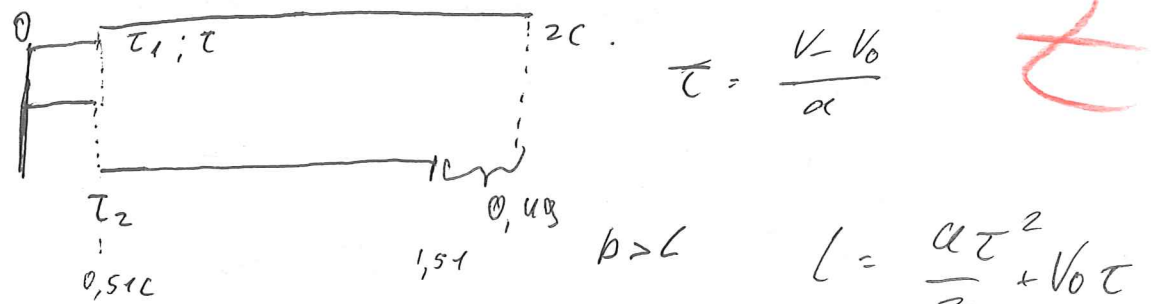 0
τ₁ ; τ
2c.
τ = (V - V₀) / a
τ₂
0,49
0,51c
1,51
b > L
L = aτ² / 2 + V₀τ